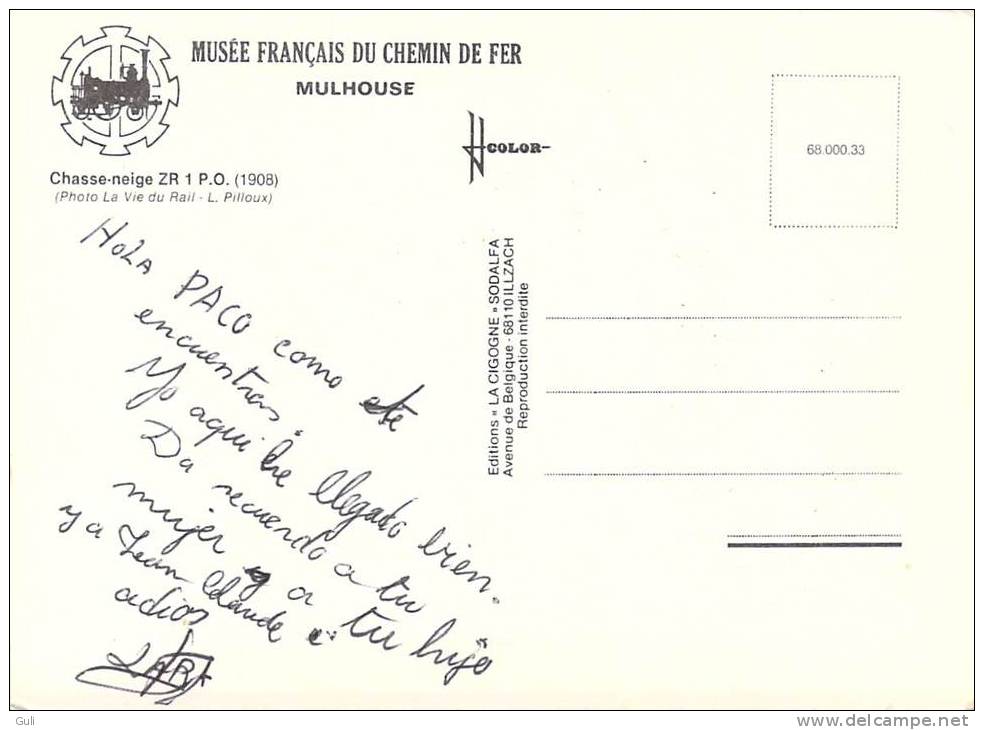 MUSÉE FRANÇAIS DU CHEMIN DE FER
MULHOUSE
COLOR
68.000.33
Chasse-neige ZR 1 P.O. (1908)
(Photo La Vie du Rail - L. Pilloux)
Editions « LA CIGOGNE » SODALFA
Avenue de Belgique - 68110 ILLZACH
Reproduction interdite
HOLA PACO como te
encuentras.
Yo aqui he llegado bien.
Da recuerdo a tu
mujer y a tu hijo
y a Jean Claude
adios
Guli
www.delcampe.net